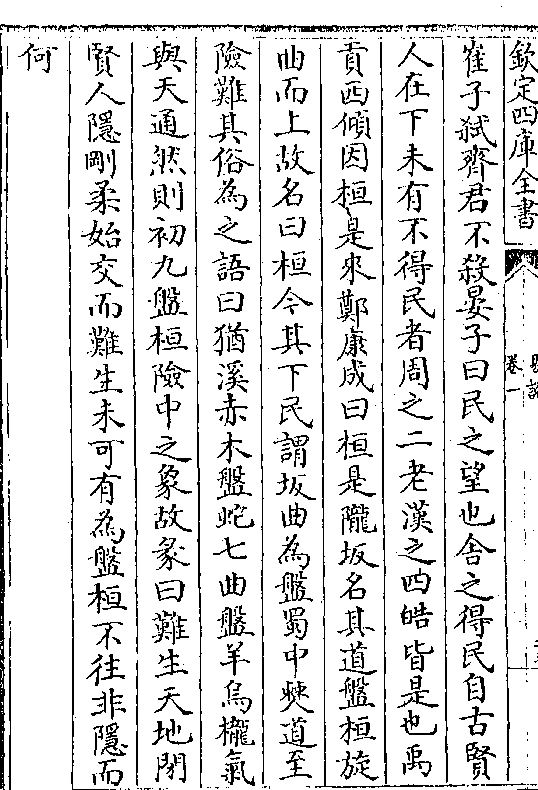 欽定四庫全書
卷一
崔子弑齊君不殺晏子曰民之望也舍之得民自古賢
人在下未有不得民者周之二老漢之四皓皆是也禹
貢西傾因桓是來鄭康成曰桓是隴坂名其道盤桓旋
曲而上故名曰桓今其下民謂坂曲為盤蜀中僰道至
險難其俗為之語曰猶溪赤木盤蛇七曲盤羊烏櫳氣
與天通然則初九盤桓險中之象故彖曰難生天地閉
賢人隱剛柔始交而難生未可有為盤桓不往非隱而
何